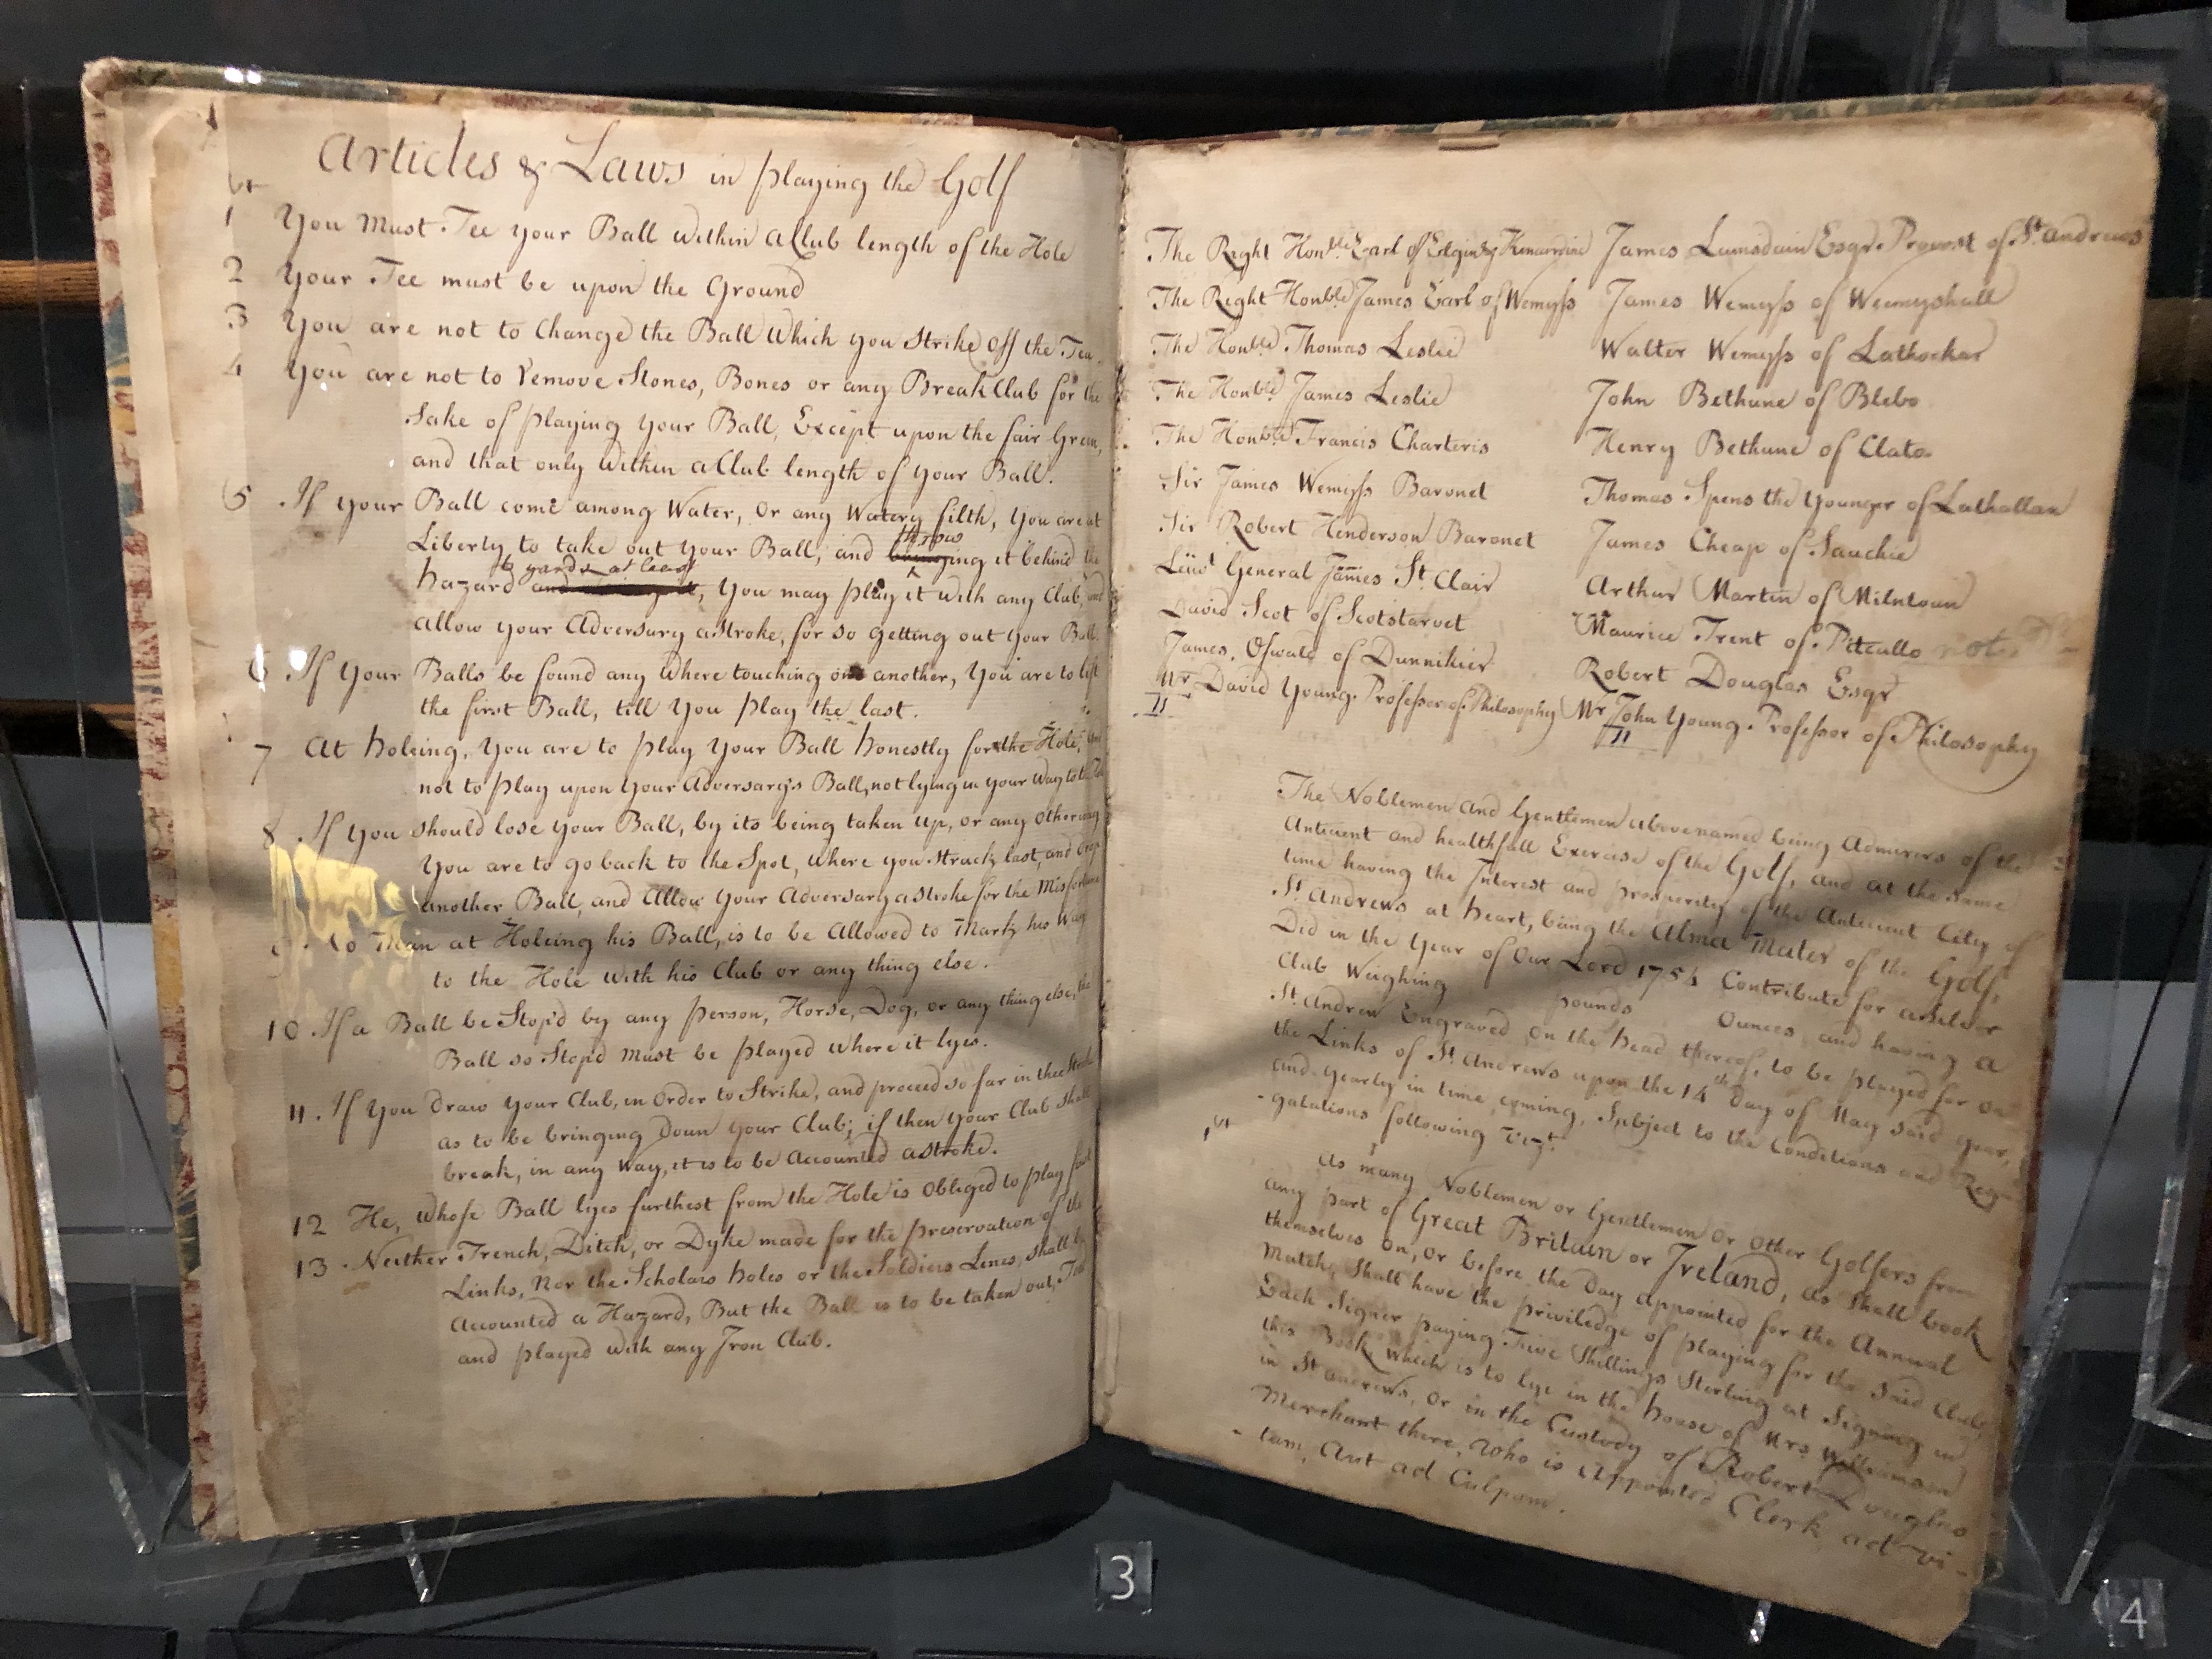 Articles & Laws in playing the Golf
1st
1 You Must Tee your Ball within a Club length of the Hole
2 Your Tee must be upon the Ground
3 You are not to Change the Ball which you Strike off the Tee
4 You are not to remove Stones, Bones or any Break Club for the
Sake of playing your Ball, Except upon the fair Green,
and that only within a Club length of your Ball.
5 If your Ball come among Water, or any Watery filth, You are at
throw
Liberty to take out your Ball, and bringing it behind the
6 yards at least
hazard, You may play it with any Club, and
allow your Adversary a Stroke, for so getting out your Ball.
6 If Your Balls be found any where touching one another, You are to lift
the first Ball, till You play the last.
7 At holeing, You are to play Your Ball honestly for the Hole, and
not to play upon Your Adversary's Ball, not lying in your way to the Hole
8 If you should lose your Ball, by its being taken up, or any other way
You are to go back to the Spot, where you Struck last, and drop
another Ball, and Allow Your Adversary a stroke for the Misfortune
No Man at Holeing his Ball, is to be Allowed to Mark his Way
to the Hole with his Club or any thing else.
10 If a Ball be Stop'd by any person, Horse, Dog, or any thing else, the
Ball so Stop'd Must be played where it lyes.
11. If You draw Your Club, in Order to Strike, and proceed so far in the Stroke
as to be bringing down Your Club; if then Your Club shall
break, in any way, it is to be Accounted a stroke.
12 He, whose Ball lyes furthest from the Hole is Obliged to play first
13 Neither Trench, Ditch, or Dyke made for the preservation of the
Links, Nor the Scholars holes or the Soldiers Lines, shall be
Accounted a Hazard, But the Ball is to be taken out, Teed
and played with any Iron Club.
The Right Honble Earl of Elgin & Kincardine
The Right Honble James Earl of Wemyss
The Honble Thomas Leslie
The Honble James Leslie
The Honble Francis Charteris
Sir James Wemyss Baronet
Sir Robert Henderson Baronet
Lieut General James St Clair
David Scot of Scotstarvet
James Oswald of Dunnikier
Mr David Young Professor of Philosophy
11
James Lumsdain Esqr. Provost of St Andrews
James Wemyss of Wemyshall
Walter Wemyss of Lathockar
John Bethune of Blebo
Henry Bethune of Clato
Thomas Spens the Younger of Lathallan
James Cheap of Sauchie
Arthur Martin of Milntoun
Maurice Trent of Pitcullo
Robert Douglas Esqr
Mr John Young Professor of Philosophy
11
The Noblemen and Gentlemen above named being Admirers of the
Antient and healthfull Exercise of the Golf, and at the same
time having the Interest and prosperity of the Antient City of
St Andrews at heart, being the Alma Mater of the Golf,
Did in the Year of Our Lord 1754 Contribute for a Silver
Club Weighing pounds Ounces and having a
St Andrew Engraved on the head thereof, to be played for on
the Links of St Andrews upon the 14th Day of May said year,
and yearly in time coming, Subject to the Conditions and Reg-
-gulations following vizt.
1st
As many Noblemen or Gentlemen or other Golfers from
any part of Great Britain or Ireland, as shall book
themselves on, or before the day appointed for the Annual
Match, Shall have the priviledge of playing for the said Club,
Each Signer paying Five Shillings Sterling at Signing in
this Book, which is to lye in the house of Mrs Williamson
in St Andrews, or in the Custody of Robert Douglas
Merchant there, who is Appointed Clerk ad vi-
-tam, Aut ad Culpam.
3
4